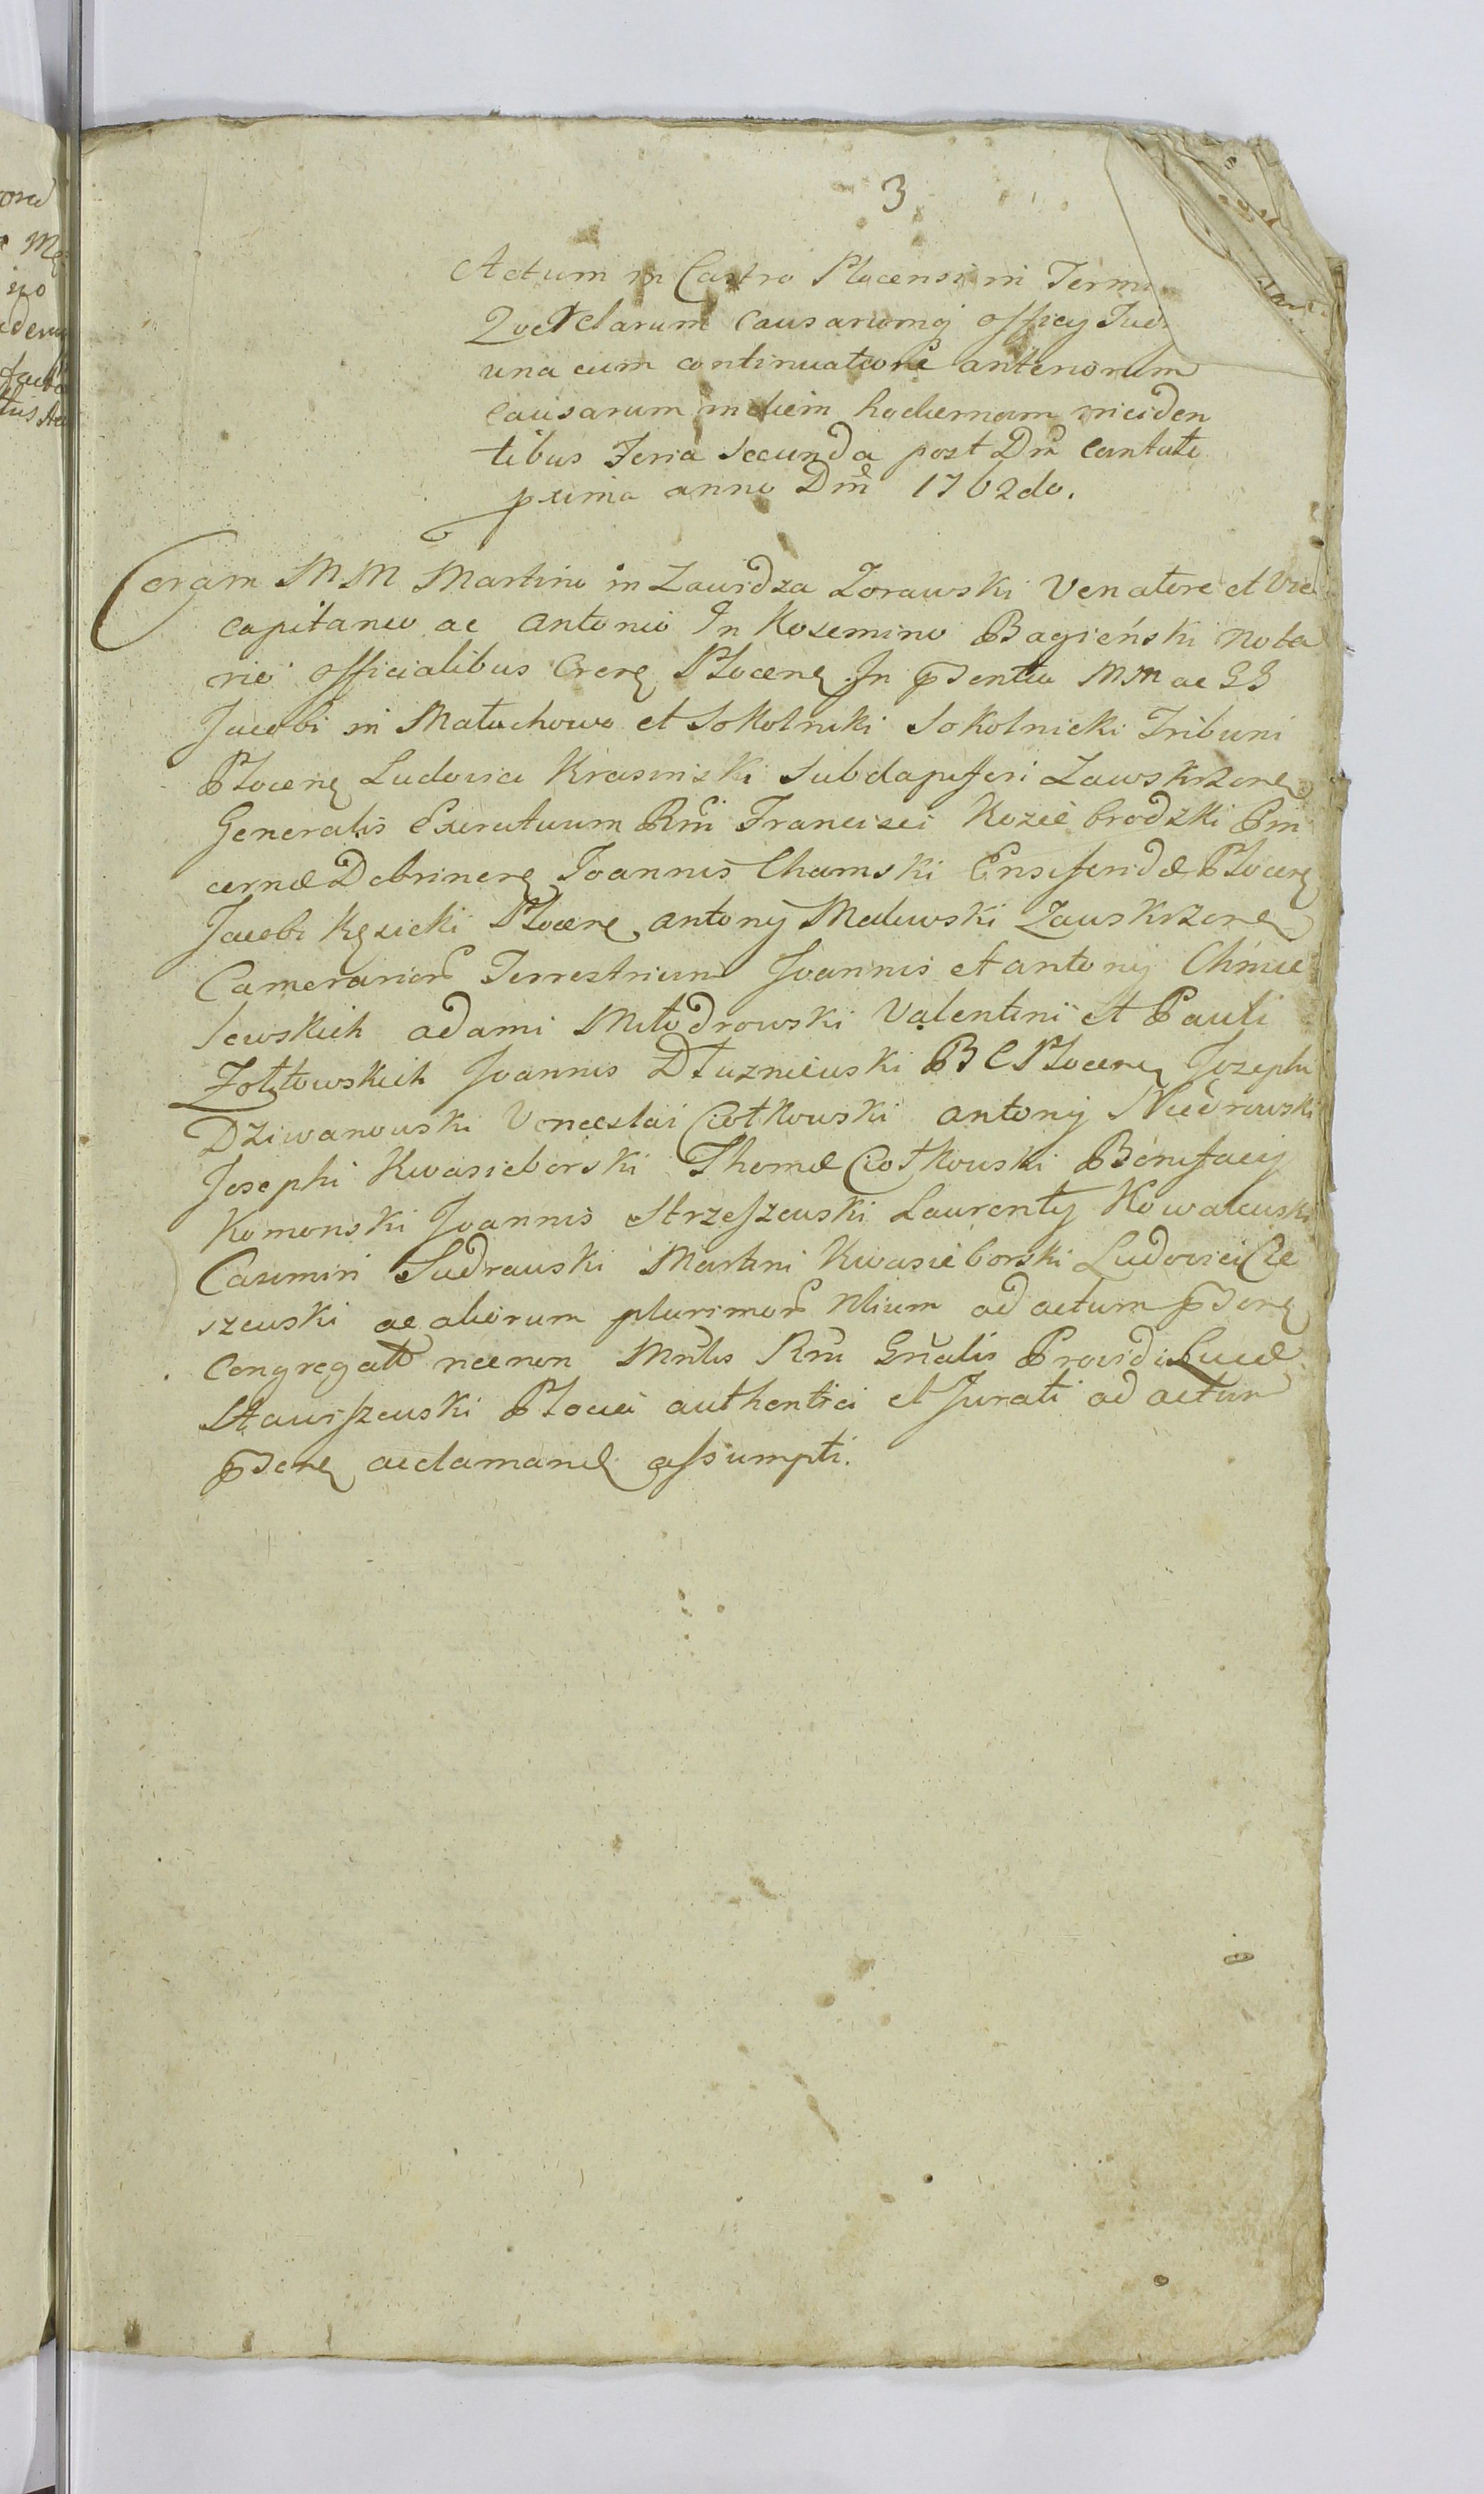 3
Actum in Castro Plocensi in Termi
Querelarum causarumq officy Judi
una cum continuatione anteriorum
causarum in diem hodiernam inciden
tibus Feria Secunda post Dm Cantate
pxima anno Dni 1762do.
Coram MM Martino in Zawidza Zorawski Venatore et Vice
capitaneo ac Antonio In Kosemino Bagieński nota
rio officialibus Cren Plocen. In pdentia MM ac GG
Jacobi in Małachowo et Sokolniki Sokolnicki Tribuni
Plocen Ludovici Krasinski Subdapiferi Zawskrzen
Generalis Exercituum Rni Francisci Koziebrodzki Pin
cernæ Dobrinen Joannis Chamski Ensiferidæ Plocen
Jacobi Kęsicki Plocen Antony Malewski Zawskrzen
Camerarior Terrestrium Joannis et Antony Chmie
lewskich Adami Młodrowski Valentini et Pauli
Zołtowskich Joannis Dłuzniewski BC Plocen Josephi
Dziwanowski Venceslai Ciotkowski Antony Niedrowski
Josephi Kwasieborski Thomæ Ciotkowski Bonifacy
Komorski Joannis Strzeszewski Laurenty Kowalewski
Casimiri Sudrawski Martini Kwasieborski Ludovici Cie
szewski ac aliorum plurimor Nlium ad actum pden
congregat necnon Mnlis Rni Gnalis Providi Lucæ
Stawiszewski Ploci authentici et Jurati ad actum
pden acclamand assumpti.